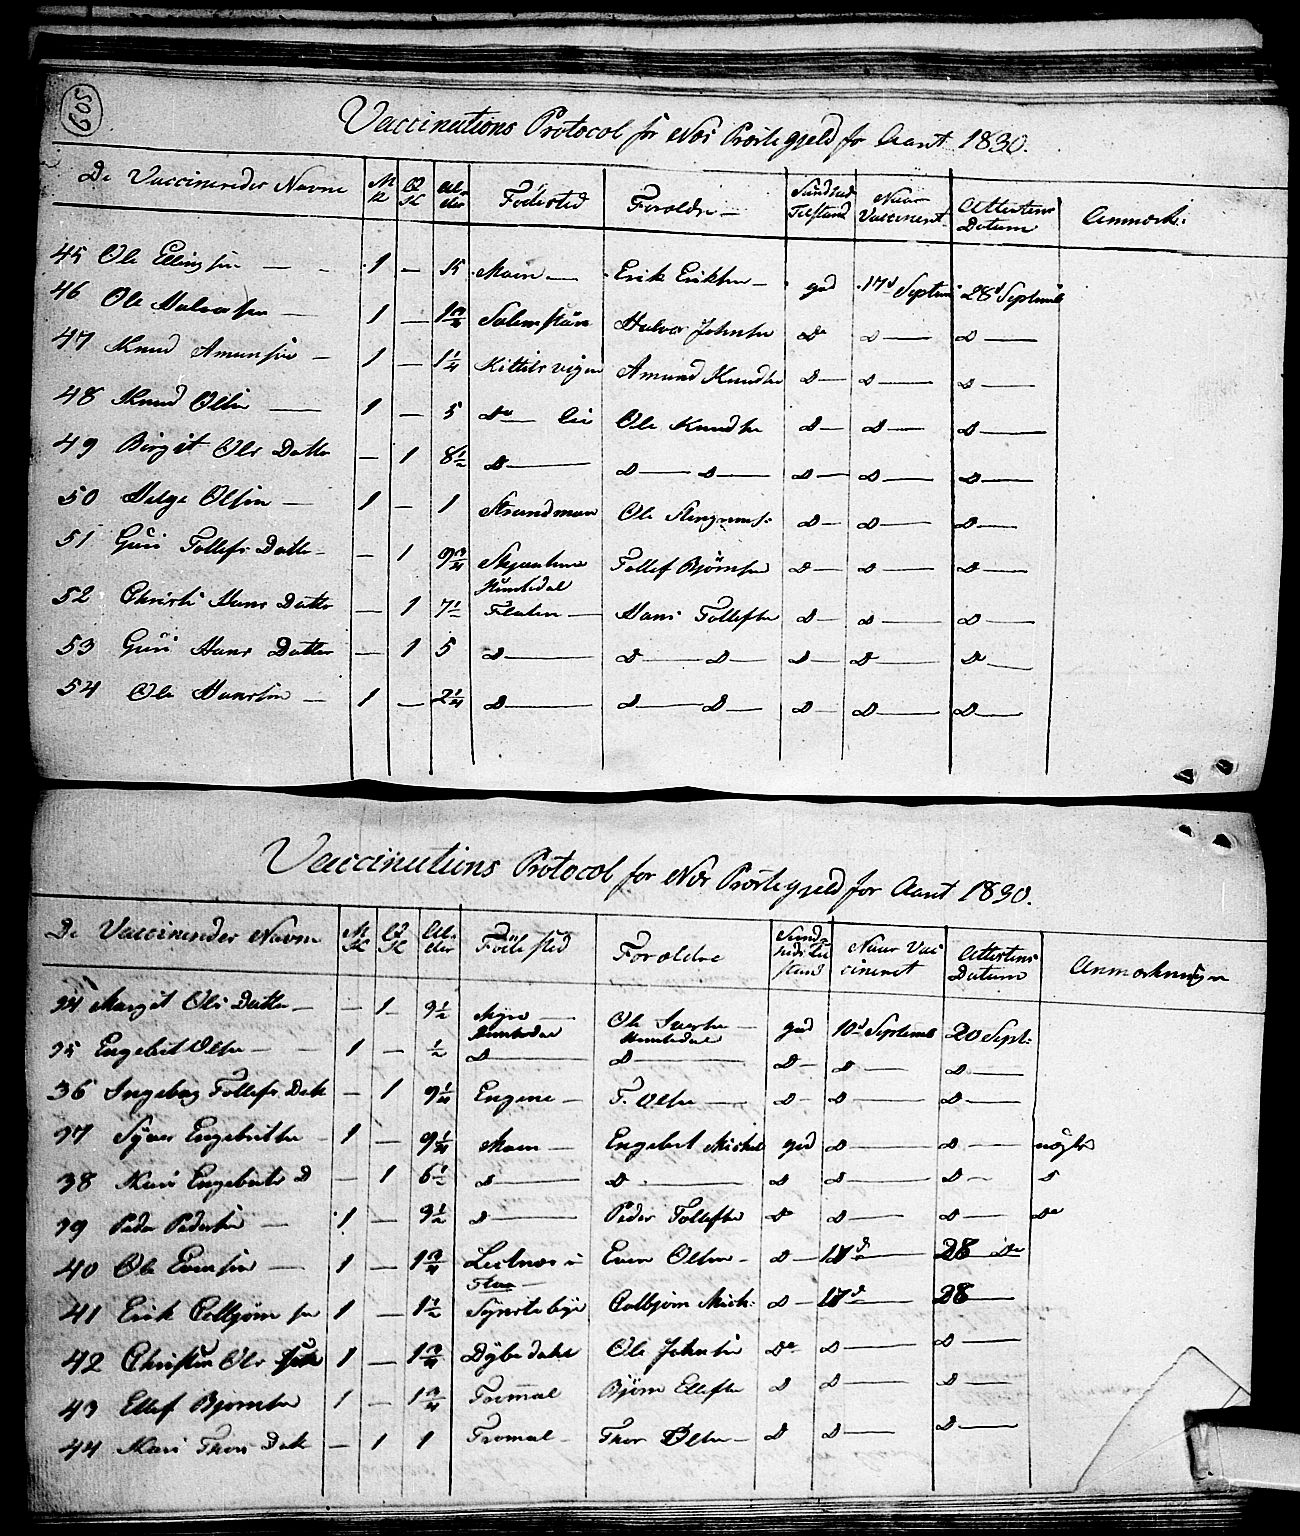 509
Vaccinations Protocol for Næs Præstegjeld for Aaret 1830.
De Vaccinereder Navne M K Q K Al- der Födested Forældre Sundhed Tilstand Naar Vaccineret Attestens Datum Anmærk:
45 Ole Ellingsen — 1 — Moen — Erik Eriksen — god 17d Septem 28d Septemb
46 Ole Halvorsen — 1 — 1 3/4 Halvor Johnsen Do D — D —
47 Knud Amunsen — 1 — 1 1/4 Kittilsvigen Amund Knudsen D — D — D —
48 Knud Olsen — 1 — 5 Do Ole Knudsen D — D — D —
49 Birgit Ols Datter — 1 8 1/2 D — D — D — D — D — D —
50 Helge Olsen — 1 — 1 Ole D — D — D —
51 Guri Tollefs Datter — 1 9 3/4 Tollef Björnsen D — D — D —
Hemsedal
52 Christi Hans Datter — 1 7 1/2 Flaten — Hans Tollefsen D — D — D —
53 Guri Hans Datter — 1 5 D — D — D — D — D — D —
54 Ole Hansen — 1 — 2 1/4 D — D — D — D — D — D —
Vaccinations Protocol for Næs Præstegjeld for Aaret 1830.
De Vaccinereder Navne M K Q K Al- der Födested Forældre Sund- heds til stand Naar Vac cineret Attestens Datum Anmærkninger
34 Margit Ols Datter — — 1 9 1/2 Myre — Ole Iversen — god 10d Septemb 20 Sept:
Hemsedal Hemsedal
35 Engebret Olsen — 1 — 1/2 D — D — D — D — D —
36 Ingebor Tollefs Datt — 1 9 1/4 Engene — T. Olsen — D — D — D —
37 Syver Engebritsen 1 — 9 1/4 Moen — Engebret Mickel god D — D — nögle
38 Kari Engebrets D — 1 6 1/2 D — D — D D — D —
39 Peder Pedersen — 1 — 9 1/2 D — Peder Tollefsen Do D — D — Do
40 Ole Evensen — 1 — 1 3/4 Even Olsen — D — 17d 28 Do
41 Erik Colbjörnsen 1 — 1 1/2 Colbjörn Mick: D — 17d — 28
42 Ols 1 — 1 3/4 Dybedahl Ole Johnsen Do D — D —
43 Ellef Bjornsen 1 — 1 3/4 Tromal Björn Ellefsen D D — D —
44 Kari Thors Datt — 1 1 Tromal — Thor Olsen — D D — D —